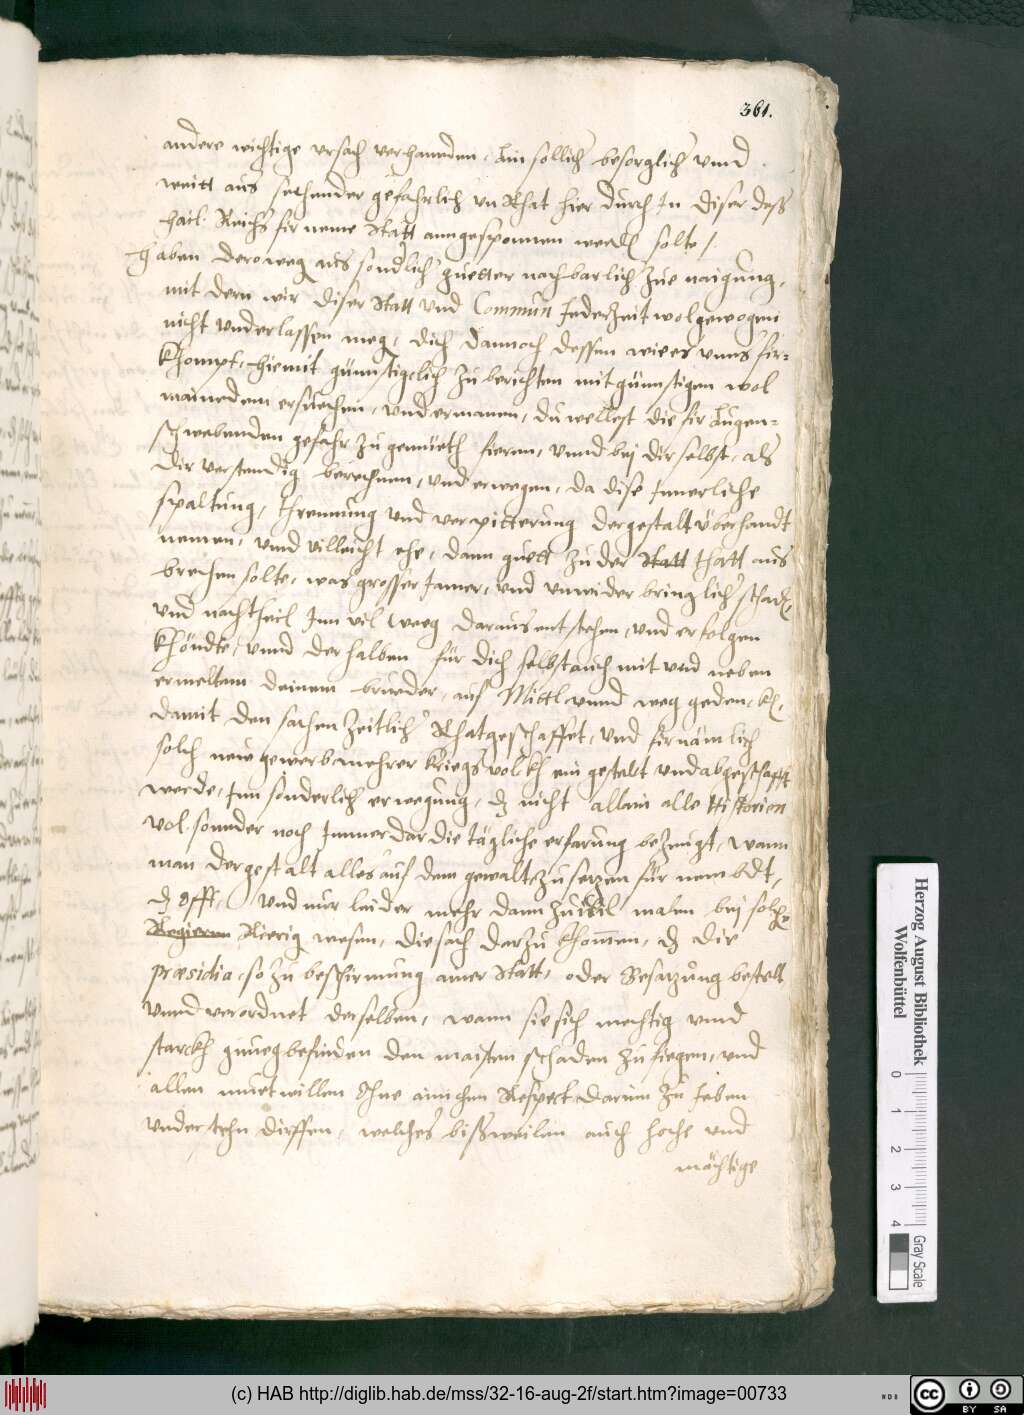 361.
andere wichtige ursach verhannden, Ain sollich besorglich unnd
weitt aus sechender gefahrlich un Rhat hier durch In diser dess
hail: Reichs firneme Statt anngesponnen werden solte /.
Haben derowegen aus sonderlich guetter nachbarlich Zue naigung,
mit dern wir diser Statt und Commun Jederzeit wolgewogen
nicht underlassen meg, dich dannoch dessen wie es unns fir-
khompt, hiemit günnstigclich zu berichten mit günnstigem wol
mainedem ersuechen, und ermanen, du wellest die fir Augen-
schwebenden gefahr zu gemüeth fieren, unnd bej dir selbst, als
dir verstendig berechnen, und erwegen, da dise Innerliche
spaltung, thrennung und verpitterung dergestalt überhandt
nemen, unnd villeicht ehe, dann guett zu der Statt thatt aus
brechen solte, was grosser Jamer, und unwider bringlich schad,
und nachtheil Inn vil weeg daraus entstehen, und erfolgen
khöndte, unnd derhalben für dich selbst auch mit und neben
ermeltem deinem brueder, auf Mittl unnd weg geden,
damit den sachen Zeitlich Rhat geschaffet, und firnämlich
solch new gewerb mehrer kriegs volckh ein gestelt und abgeschafft
werde, Inn sonderlich erwegung, dz nicht allain alle Historien
vol. sonnder noch Immerdar die tägliche erfarung bezeugt, wann
man dergestalt alles auf dem gewalt zu setzen für nembdt,
dz offt, und nur laider mehr dann zuvil malen bej solch
Regieren Rierig wesen, die sach darzu khommen, dz die
præsidia, so zu beschirmung ainer Statt, oder Besatzung bestelt
unnd verordnet derselben, wann sie sich mechtig unnd
starckh gnueg befinden den maisten schaden zu fiegen, und
allen muetwillen Ohne ainichen Respect darinn zu Ieben
understehn dirffen, welches bissweilen auch hoche und
mächtige
Herzog August Bibliothek
Wolfenbüttel
0 1 2 3 4
Gray Scale
(c) HAB http://diglib.hab.de/mss/32-16-aug-2f/start.htm?image=00733
cc BY SA